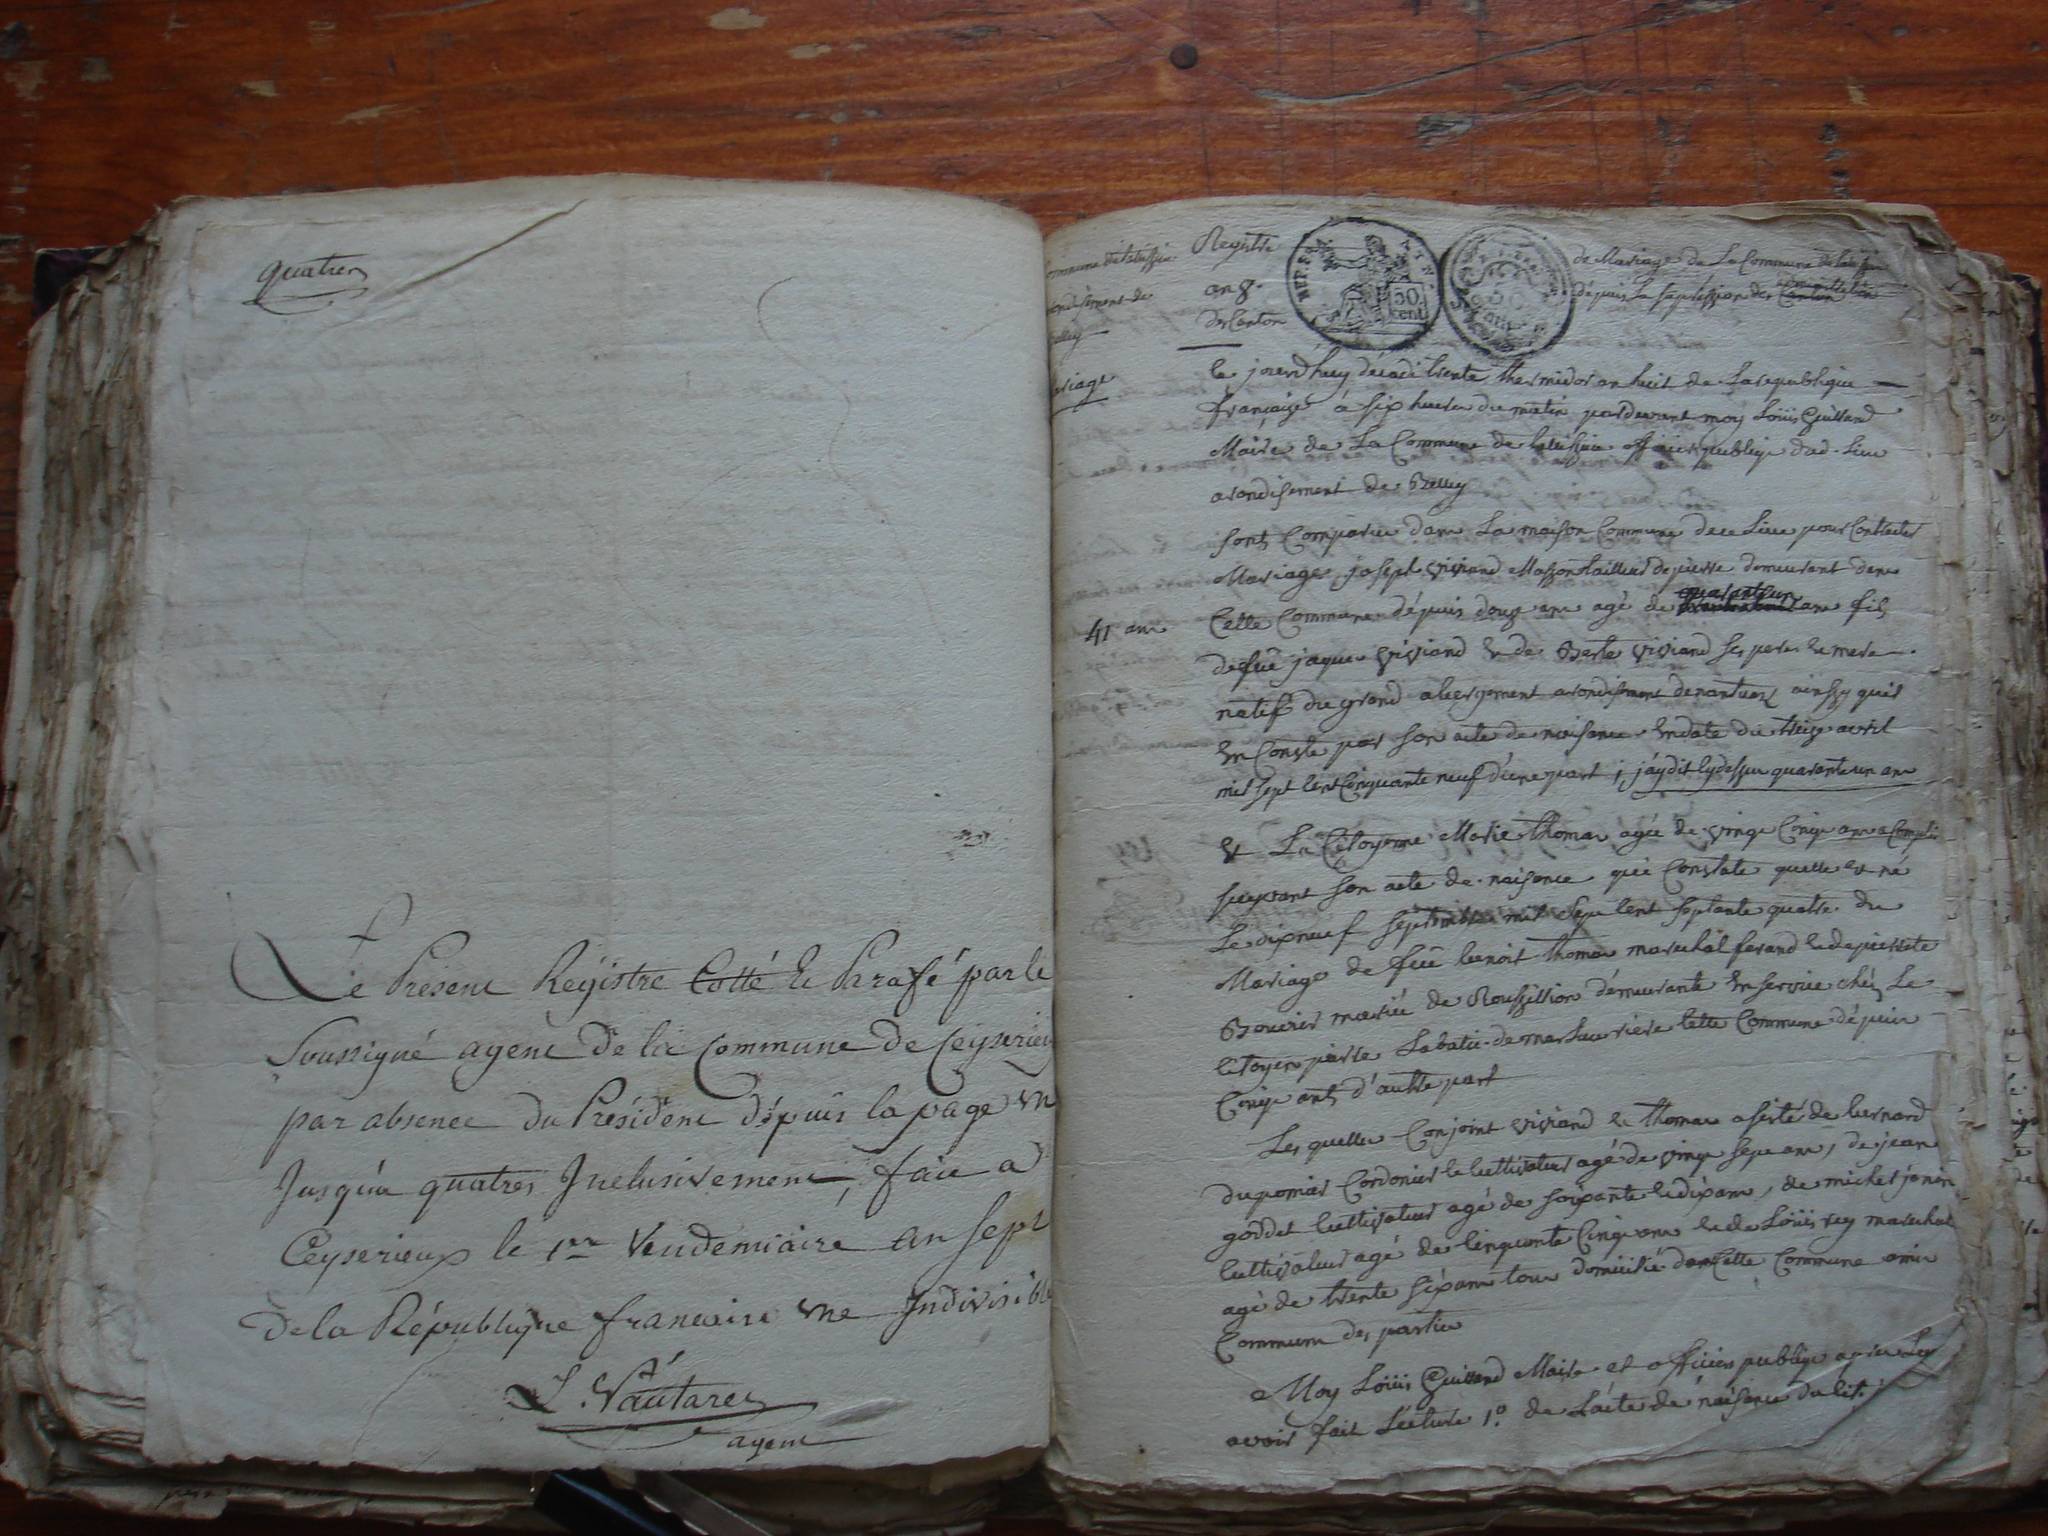 quatres
Le Présent Registre Cotté & Parafé par le
Soussigné agent de la Commune de Ceyserieux
par absence du Président dépuis la page un
Jusqu'a quatres Inclusivement, fait a
Ceyserieux le 1er Vendemiaire an sept
de la République francaise une Indivisible
L. Vautares
agent
Registre
an 8.
de Mariage de La Commune de
dépuis La supression des Canton
REP. FRA.
50.
cent
ariage
le jourd'huy décadi trente thermidor an huit de La republique
françaize à six heures du matin pardevant moy Loüis Guilland
Maire de La Commune de officier publique dud. Lieu
arondisement de Belley
sont Comparue dans La maison Commune de ce Lieu pour Contracter
Mariage joseph viviand Masson tailleur de pierre demeurant dans
41 ans
Cette Commune dépuis douze ans agé de quarante un ans fils
de feü jaques viviand & de Berte viviand ses pere & mere
natif du grand abergement arondisment de nantuas ainssy quil
En Conste par son acte de naisance En date du treize avril
mil sept Cent Cinquante neuf d'une part ; j'ay dit Cy dessus quarante un ans
& La Citoyenne Marie Thomas agée de vingt Cinq ans Complis
suyvant son acte de naisance qui Constate quelle & né
Le dix neuf septembre mil Sept Cent septante quatre du
Mariage de feü benoit Thomas marechal ferand & de pierrete
Bouvier mariée de Roussillion démeurante En servire chéz Le
Citoyen pierre Labatie de Cette Commune dépuis
Cinq ants d'autre part
Les quelles Conjoint viviand & thomas asisté de bernard
dupomier Cordonier & Cultivateur agé de vingt sept ans, de jean
goddet Cultivateur agé de soixante & dix ans, de michel janin
Cultivateur agé de Cinquante Cinq ans & de Loüis rey marechal
agé de trente six ans tous domicilié dans Cette Commune amis
Commum des parties
Moy Loüis Guilland Maire et officier publique apres Les
avoir fait Lecture 1º. de L'acte de naisance du Cit.